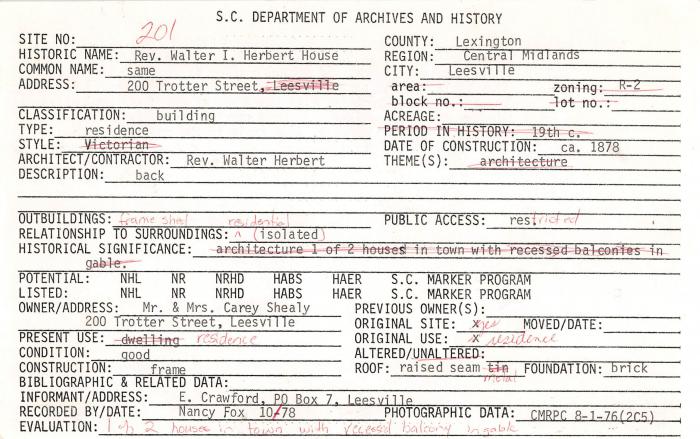 S.C. DEPARTMENT OF ARCHIVES AND HISTORY
SITE NO: 201
HISTORIC NAME: Rev. Walter I. Herbert House
COMMON NAME: same
ADDRESS: 200 Trotter Street, Leesville
COUNTY: Lexington
REGION: Central Midlands
CITY: Leesville
area: zoning: R-2
block no.: lot no.:
CLASSIFICATION: building
TYPE: residence
STYLE: Victorian
ARCHITECT/CONTRACTOR: Rev. Walter Herbert
DESCRIPTION: back
ACREAGE:
PERIOD IN HISTORY: 19th c.
DATE OF CONSTRUCTION: ca. 1878
THEME(S): architecture
OUTBUILDINGS: frame shed residential
PUBLIC ACCESS: restricted
RELATIONSHIP TO SURROUNDINGS: ^ (isolated)
HISTORICAL SIGNIFICANCE: architecture 1 of 2 houses in town with recessed balconies in
gable.
POTENTIAL: NHL NR NRHD HABS HAER S.C. MARKER PROGRAM
LISTED: NHL NR NRHD HABS HAER S.C. MARKER PROGRAM
OWNER/ADDRESS: Mr. & Mrs. Carey Shealy
200 Trotter Street, Leesville
PRESENT USE: dwelling residence
CONDITION: good
CONSTRUCTION: frame
PREVIOUS OWNER(S):
ORIGINAL SITE: x yes MOVED/DATE:
ORIGINAL USE: x residence
ALTERED/UNALTERED:
ROOF: raised seam tin metal FOUNDATION: brick
BIBLIOGRAPHIC & RELATED DATA:
INFORMANT/ADDRESS: E. Crawford, PO Box 7, Leesville
RECORDED BY/DATE: Nancy Fox 10/78 PHOTOGRAPHIC DATA: CMRPC 8-1-76(2C5)
EVALUATION: 1 of 2 houses in town with recessed balcony in gable